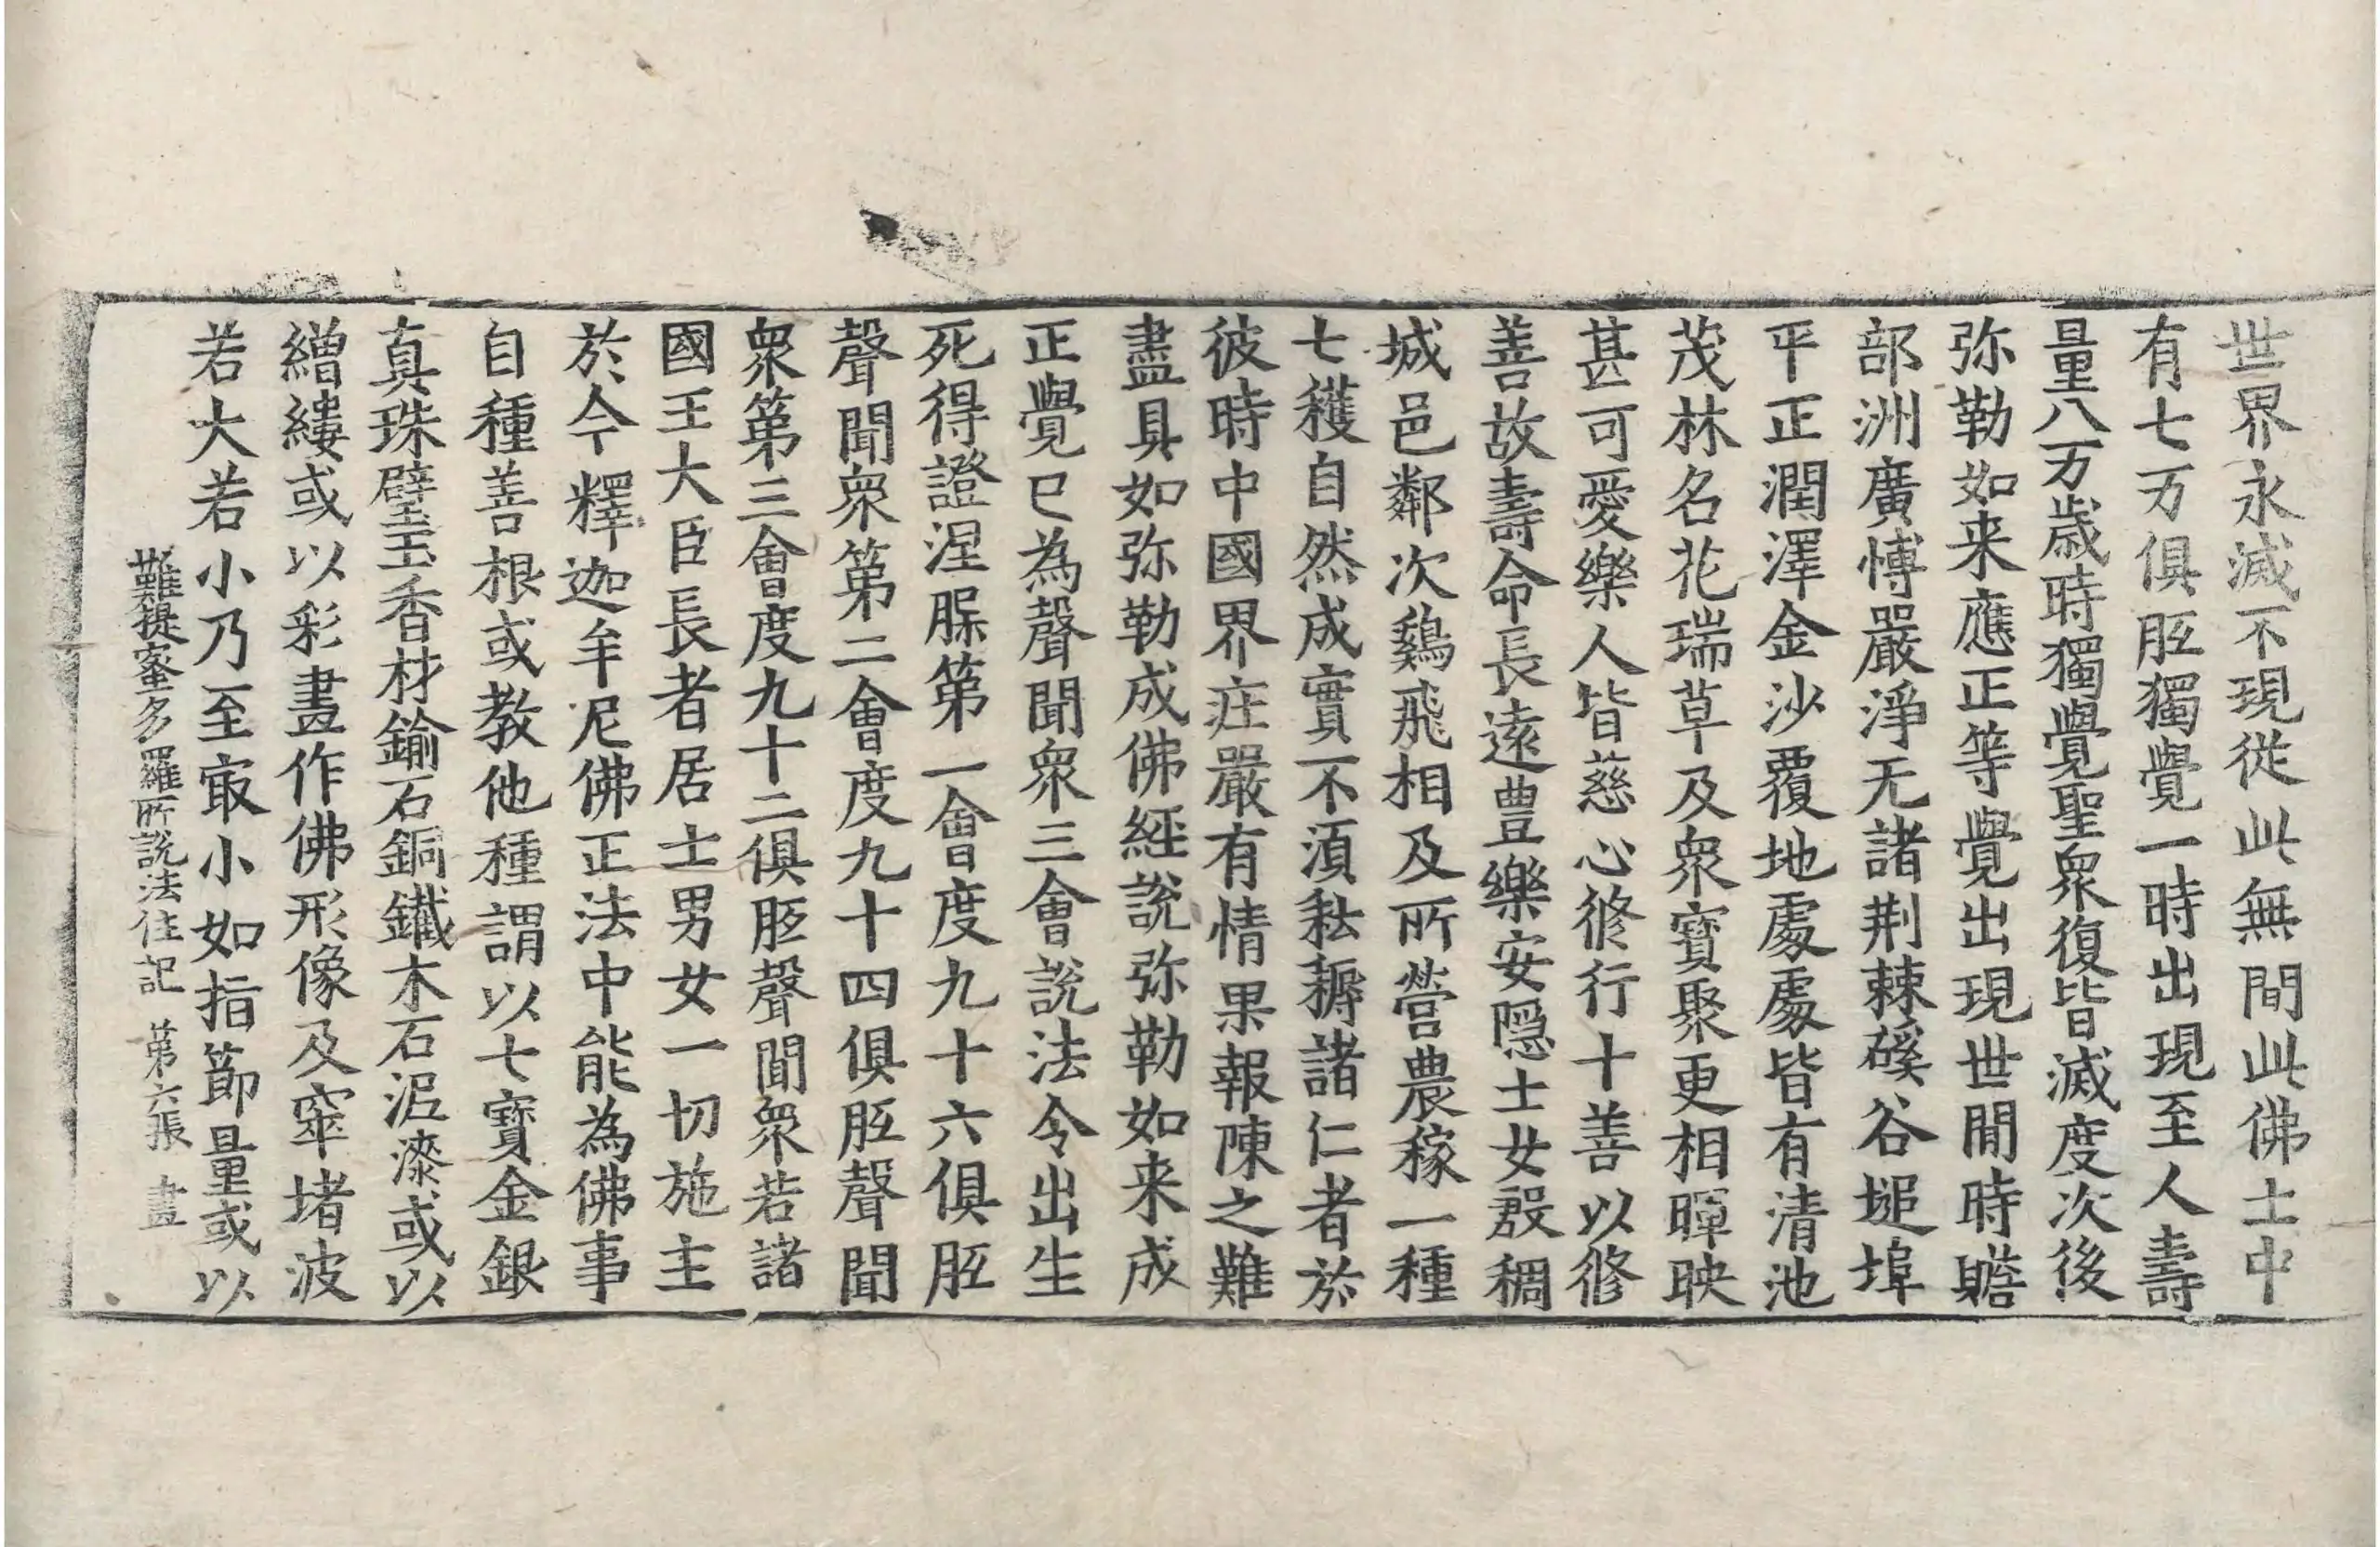 世界永滅不現從此無間此佛土中
有七万俱胝獨覺一時出現至人壽
量八万歲時獨覺聖衆復皆滅度次後
弥勒如来應正等覺出現世間時贍
部洲廣愽嚴淨无諸荆棘磎谷堆埠
平正潤澤金沙覆地處處皆有清池
茂林名花瑞草及衆寶聚更相暉映
甚可愛樂人皆慈心修行十善以修
善故壽命長遠豊樂安隠士女殷稠
城邑鄰次鷄飛相及所營農稼一種
七穫自然成實不湏耘耨諸仁者於
彼時中國界庄嚴有情果報陳之難
盡具如弥勒成佛經說弥勒如来成
正覺已為聲聞衆三會說法令出生
死得證涅槃第一會度九十六俱胝
聲聞衆第二會度九十四俱胝聲聞
衆第三會度九十二俱胝聲聞衆若諸
國王大臣長者居士男女一切施主
於今釋迦牟尼佛正法中能為佛事
自種善根或教他種謂以七寶金銀
真珠璧玉香材鍮石銅鐵木石泥漆或以
繒縷或以彩畫作佛形像及窣堵波
若大若小乃至㝡小如指節量或以
難提蜜多羅所說法住記 第六張 畫